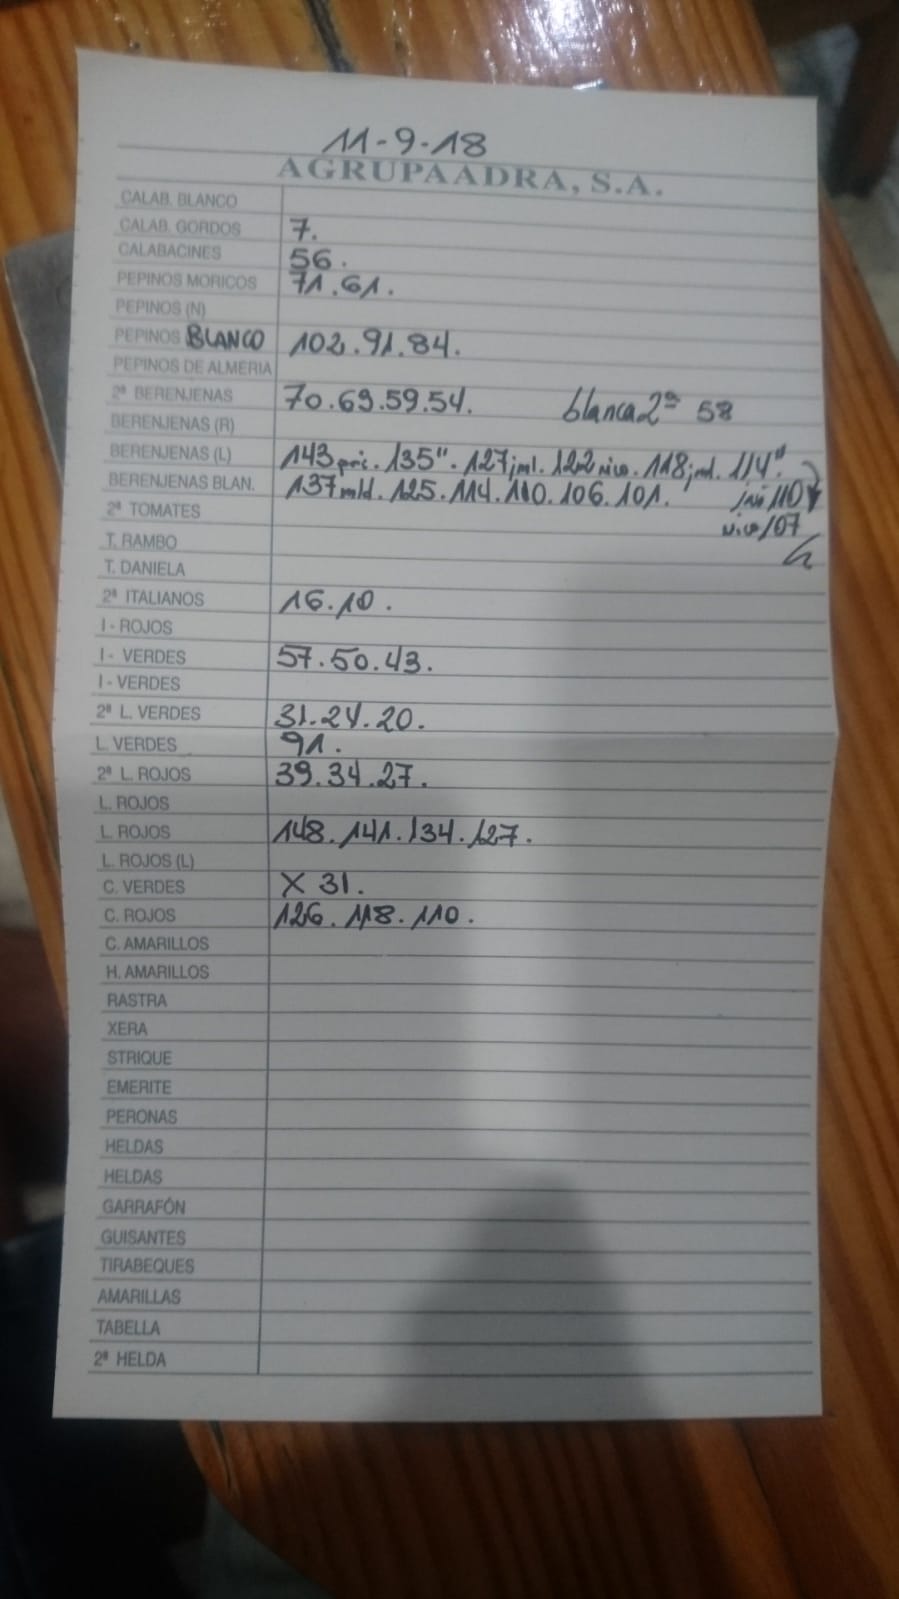 11-9-18
AGRUPAADRA, S.A.
CALAB. BLANCO
CALAB. GORDOS 7.
CALABACINES 56.
PEPINOS MORICOS 71.61.
PEPINOS (N)
PEPINOS BLANCO 102.91.84.
PEPINOS DE ALMERIA
2ª BERENJENAS 70.69.59.54. blanca 2ª 58
BERENJENAS (R)
BERENJENAS (L) 143 pri. 135". 127 . 122 . 118 . 114".
BERENJENAS BLAN. 137 mld. 125. 114. 110. 106. 101. 110
2ª TOMATES 107
T. RAMBO
T. DANIELA
2ª ITALIANOS 16.10.
I - ROJOS
I - VERDES 57.50.43.
I - VERDES
2ª L. VERDES 31.24.20.
L. VERDES 91.
2ª L. ROJOS 39.34.27.
L. ROJOS
L. ROJOS 148.141.134.127.
L. ROJOS (L)
C. VERDES X 31.
C. ROJOS 126.118.110.
C. AMARILLOS
H. AMARILLOS
RASTRA
XERA
STRIQUE
EMERITE
PERONAS
HELDAS
HELDAS
GARRAFÓN
GUISANTES
TIRABEQUES
AMARILLAS
TABELLA
2ª HELDA